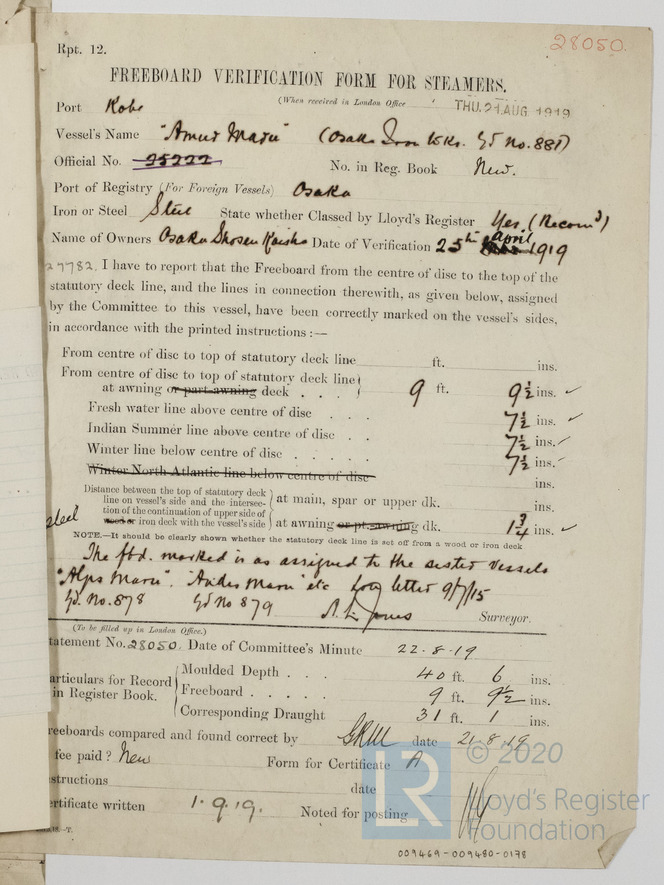 Rpt. 12.
28050.
FREEBOARD VERIFICATION FORM FOR STEAMERS.
(When received in London Office THU. 21 AUG. 1919
Port Kobe
Vessel's Name "Amur Maru" (Osaka Iron Wks. Yd No. 881)
Official No. 25222 No. in Reg. Book New.
Port of Registry (For Foreign Vessels) Osaka
Iron or Steel Steel State whether Classed by Lloyd's Register Yes (Recomd)
Name of Owners Osaka Shosen Kaisha Date of Verification 25th April 1919
27782. I have to report that the Freeboard from the centre of disc to the top of the
statutory deck line, and the lines in connection therewith, as given below, assigned
by the Committee to this vessel, have been correctly marked on the vessel's sides,
in accordance with the printed instructions:—
From centre of disc to top of statutory deck line ft. ins.
From centre of disc to top of statutory deck line
at awning or part-awning deck . . . 9 ft. 9½ ins. ✓
Fresh water line above centre of disc . . . 7½ ins. ✓
Indian Summer line above centre of disc . . 7½ ins. ✓
Winter line below centre of disc . . . . . 7½ ins. ✓
Winter North Atlantic line below centre of disc ins.
Distance between the top of statutory deck
line on vessel's side and the intersec-
tion of the continuation of upper side of
steel wood or iron deck with the vessel's side
at main, spar or upper dk. ins.
at awning or pt. awning dk. 1¾ ins. ✓
NOTE.—It should be clearly shown whether the statutory deck line is set off from a wood or iron deck
The fbd. marked is as assigned to the sister vessels
"Alps Maru". "Andes Maru" etc letter 9/7/15
Yd. No. 878 Yd No 879 Jones Surveyor.
(To be filled up in London Office.)
tatement No. 28050. Date of Committee's Minute 22.8.19
articulars for Record
in Register Book.
Moulded Depth . . . 40 ft. 6 ins.
Freeboard . . . . . 9 ft. 9½ ins.
Corresponding Draught 31 ft. 1 ins.
reeboards compared and found correct by GRM date 21.8.19
fee paid? New Form for Certificate A
structions date
ertificate written 1.9.19. Noted for posting
© 2020
LR
Lloyd's Register
Foundation
009469-009480-0178